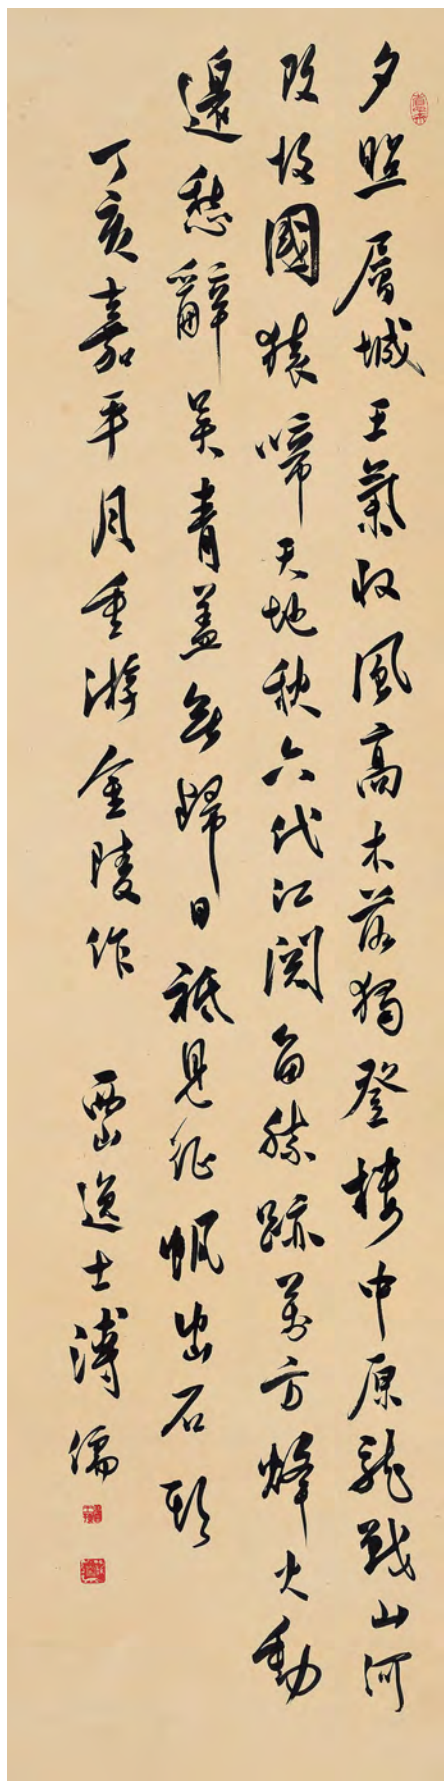 夕照層城王氣收風高木落獨登樓中原龍戰山河
改故國猿啼天地秋六代江關留勝跡萬方烽火動
邊愁辭吳青蓋無歸日祗見征帆出石頭
丁亥嘉平月重游金陵作 西山逸士溥儒